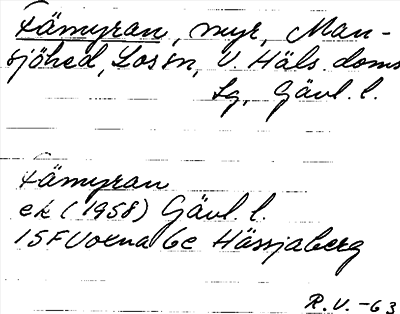 Fämyran, myr, Man-
sjöhed, Los sn, V. Häls. doms
lg, Gävl. l.
Fämyran
ek (1958) Gävl. l.
15F Voxna 6c Hässjaberg
R. V. -63